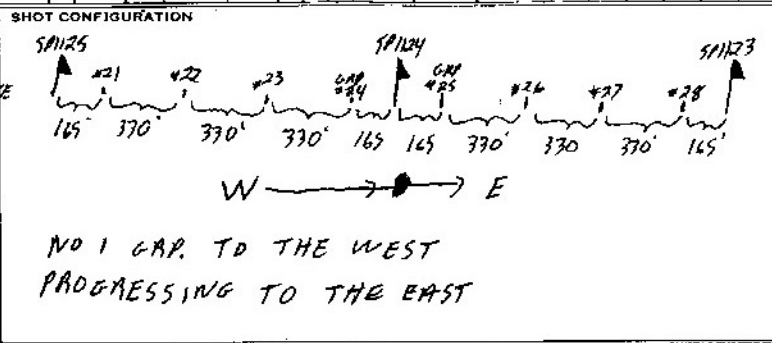 SHOT CONFIGURATION
SP1125 SP1124 SP1123
#21 #22 #23 GRP #24 GRP #25 #26 #27 #28
165' 330' 330' 330' 165 165 330' 330 330' 165'
W E
NO 1 GRP. TO THE WEST
PROGRESSING TO THE EAST